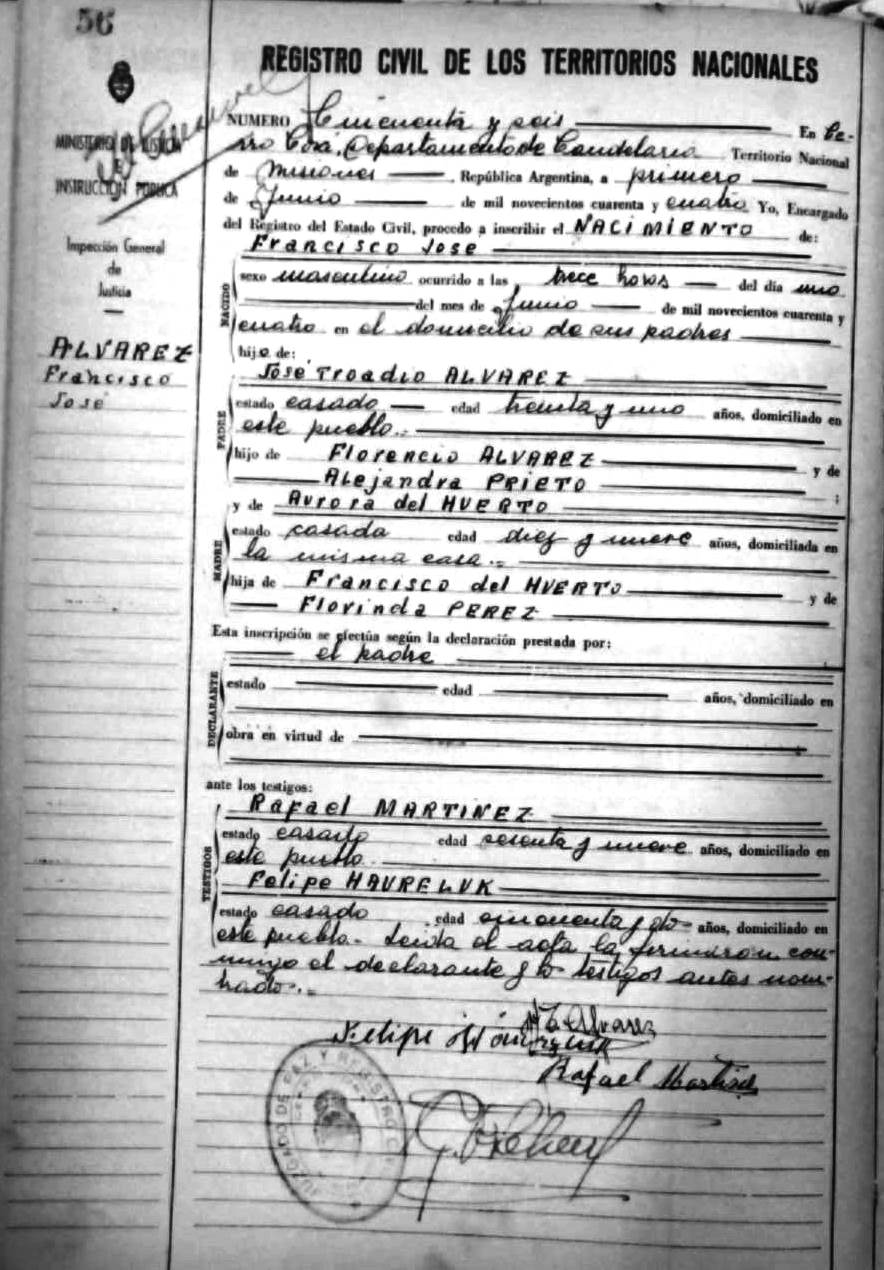 56
REGISTRO CIVIL DE LOS TERRITORIOS NACIONALES
MINISTERIO DE JUSTICIA
E
INSTRUCCIÓN PÚBLICA
Inspección General
de
Justicia
ALVAREZ
Francisco
Jose
NUMERO Cincuenta y seis En Ce-
rro Corá, Departamento de Candelaria Territorio Nacional
de Misiones República Argentina, a primero
de Junio de mil novecientos cuarenta y cuatro Yo, Encargado
del Registro del Estado Civil, procedo a inscribir el NACIMIENTO de:
Francisco Jose
NACIDO
sexo masculino ocurrido a las trece horas del día uno
del mes de Junio de mil novecientos cuarenta y
cuatro en el domicilio de sus padres
hijo de:
Jose Troadio ALVAREZ
PADRE
estado casado edad treinta y uno años, domiciliado en
este pueblo.
hijo de Florencio ALVAREZ y de
Alejandra PRIETO ;
y de Aurora del HUERTO
MADRE
estado casada edad diez y nueve años, domiciliada en
la misma casa.
hija de Francisco del HUERTO y de
Florinda PEREZ
Esta inscripción se efectúa según la declaración prestada por:
el padre
DECLARANTE
estado edad años, domiciliado en
obra en virtud de
ante los testigos:
Rafael MARTINEZ
TESTIGOS
estado casado edad sesenta y nueve años, domiciliado en
este pueblo
Felipe HAURELUK
estado casado edad cincuenta y do- años, domiciliado en
este pueblo- Leida el acta la firmaron con-
migo el declarante y lo testigos antes nom-
brado.
J. T. Alvarez
Felipe
Rafael Martinez
JUZGADO DE PAZ Y REGISTRO CIVIL